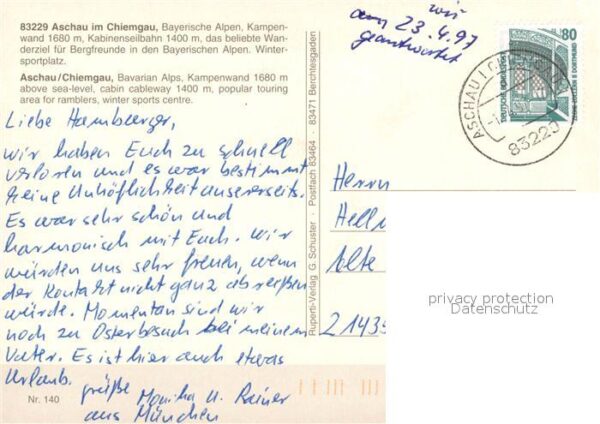 83229 Aschau im Chiemgau, Bayerische Alpen, Kampen-
wand 1680 m, Kabinenseilbahn 1400 m, das beliebte Wan-
derziel für Bergfreunde in den Bayerischen Alpen. Winter-
sportplatz.
Aschau/Chiemgau, Bavarian Alps, Kampenwand 1680 m
above sea-level, cabin cableway 1400 m, popular touring
area for ramblers, winter sports centre.
Liebe Hamburger,
wir haben Euch zu schnell
verloren und es war bestimmt
keine Unhöflichkeit unsererseits.
Es war sehr schön und
harmonisch mit Euch. Wir
würden uns sehr freuen, wenn
der Kontakt nicht ganz abreißen
würde. Momentan sind wir
noch zu Osterbesuch bei meinem
Vater. Es ist hier auch etwas
Urlaub.
Grüße Monika u. Rainer
aus München
Nr. 140
Ruperti-Verlag G. Schuster · Postfach 83464 · 83471 Berchtesgaden
wir
am 23.4.97
geantwortet
80
DEUTSCHE BUNDESPOST
ZECHE ZOLLERN II DORTMUND
ASCHAU I. CHIEMGAU
83229
Herrn
Hell
Alte
2143
privacy protection
Datenschutz